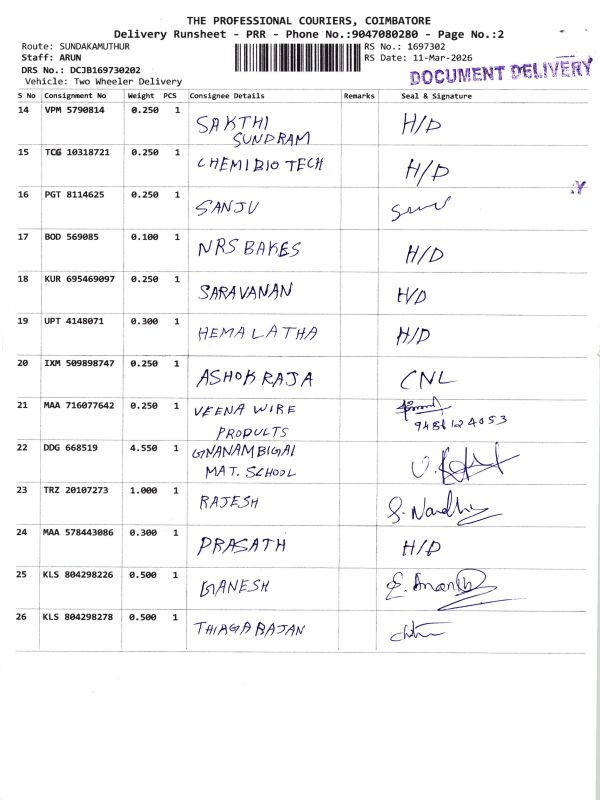 THE PROFESSIONAL COURIERS, COIMBATORE
Delivery Runsheet - PRR - Phone No.:9047080280 - Page No.:2
Route: SUNDAKAMUTHUR
RS No.: 1697302
Staff: ARUN
RS Date: 11-Mar-2026
DRS No.: DCJB169730202
DOCUMENT DELIVERY
Vehicle: Two Wheeler Delivery
S No Consignment No Weight PCS Consignee Details Remarks Seal & Signature
14 VPM 5790814 0.250 1 SAKTHI H/D
SUNDRAM
15 TCG 10318721 0.250 1 CHEMIBIO TECH H/D
16 PGT 8114625 0.250 1 SANJU
17 BOD 569085 0.100 1 NRS BAKES H/D
18 KUR 695469097 0.250 1 SARAVANAN H/D
19 UPT 4148071 0.300 1 HEMA LATHA H/D
20 IXM 509898747 0.250 1 ASHOK RAJA CNL
21 MAA 716077642 0.250 1 VEENA WIRE
PRODULTS 9486124053
22 DDG 668519 4.550 1 GNANAMBIGAI
MAT. SCHOOL
23 TRZ 20107273 1.000 1 RAJESH
24 MAA 578443086 0.300 1 PRASATH H/D
25 KLS 804298226 0.500 1 GANESH
26 KLS 804298278 0.500 1 THIAGARAJAN